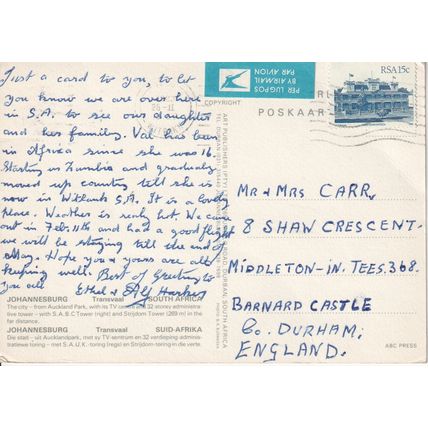 Just a card to you, to let
you know we are over here
in S.A. to see our daughter
and her family. Val has been
in Africa since she was 16.
Starting in Zambia and gradually
moved up country till she is
now in Witbank S.A. It is a lovely
place. Weather is really hot. We came
out in Feb. 11th and had a good flight
we will be staying till the end of
May. Hope you & yours are all
keeping well. Best of Greetings to
you all. Ethel & Alf
JOHANNESBURG Transvaal SOUTH AFRICA
The city - from Auckland Park, with its TV centre and 32 storey administra-
tive tower - with S.A.B.C Tower (right) and Strijdom Tower (269 m) in the
far distance.
JOHANNESBURG Transvaal SUID-AFRIKA
Die stad - uit Aucklandpark, met sy TV-sentrum en 32 verdieping adminis-
tratiewe toring - met S.A.U.K.-toring (regs) en Strijdom-toring in die verte.
COPYRIGHT
ART PUBLISHERS (PTY)
DURBAN, SOUTH AFRICA
PER LUGPOS
BY AIRMAIL
PAR AVION
RSA 15c
POSKAAR
Mr & Mrs CARR,
8 SHAW CRESCENT.
MIDDLETON-IN. TEES. 368.
BARNARD CASTLE
Co. DURHAM;
ENGLAND.
ABC PRESS